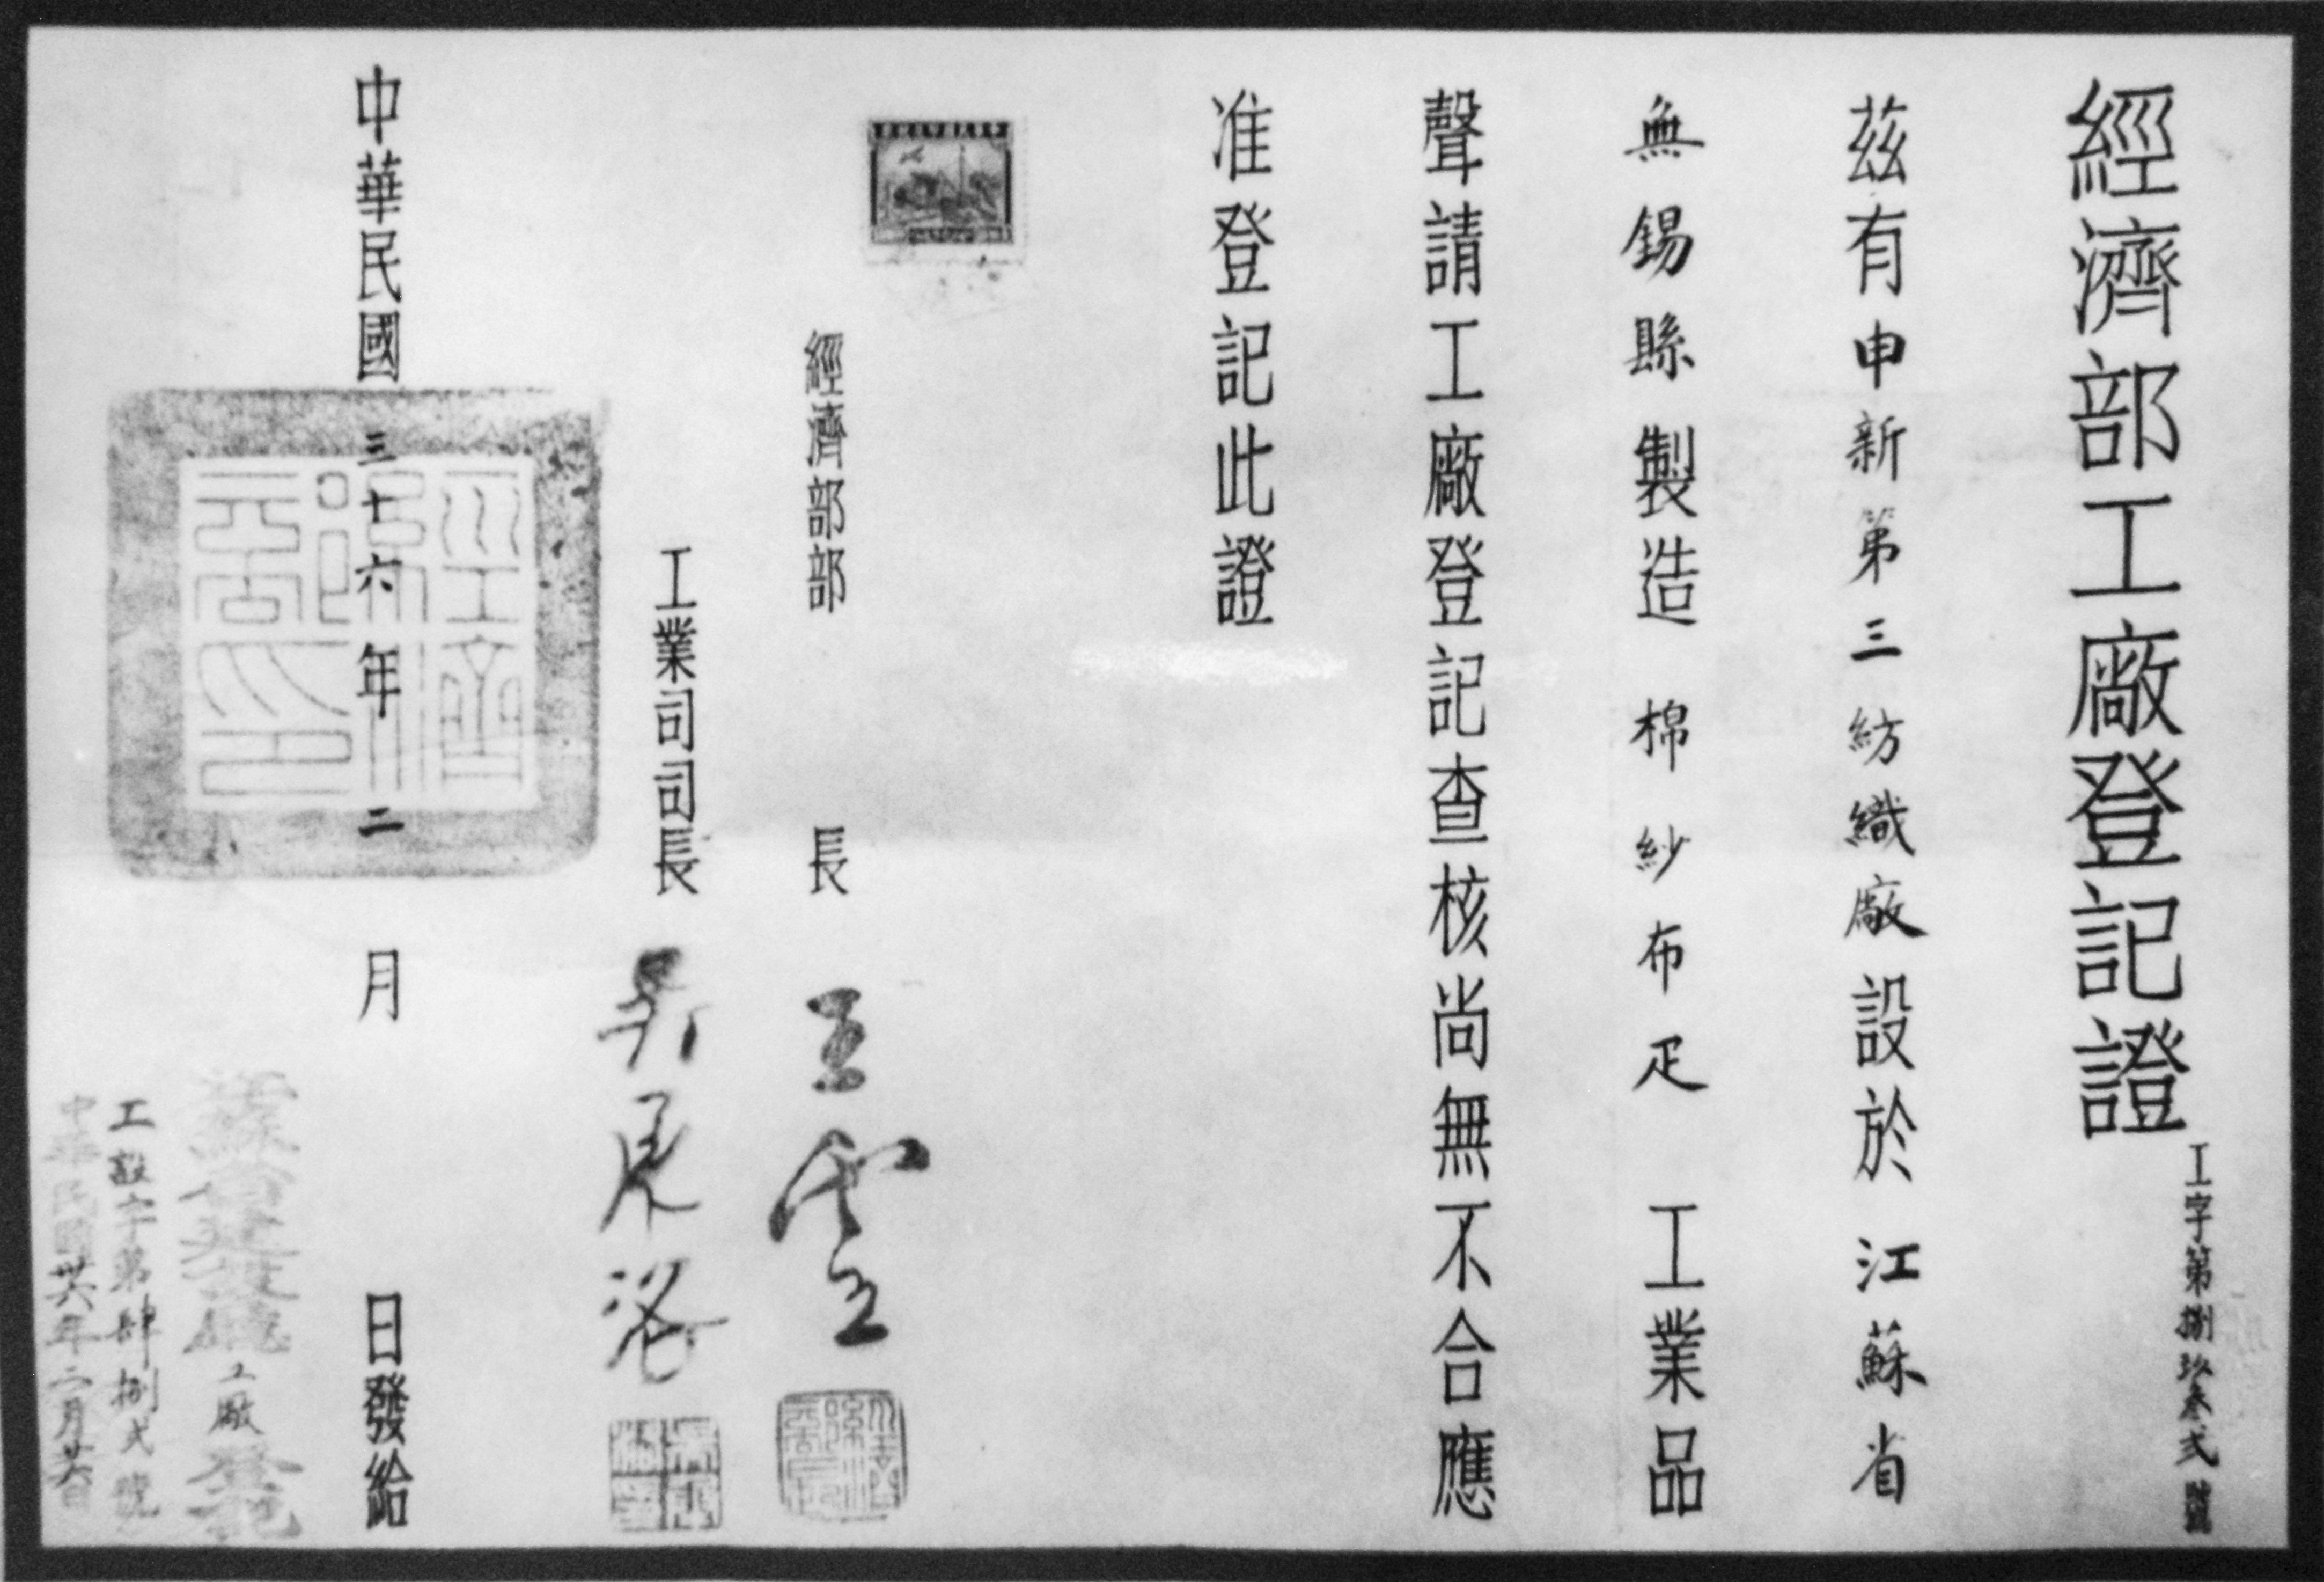 經濟部工廠登記證
工字第捌玖叁弍號
茲有申新第三紡織廠設於江蘇省
無錫縣製造棉紗布疋工業品
聲請工廠登記查核尚無不合應
准登記此證
經濟部部長 王雲五
工業司司長
中華民國三十六年二月 日發給
經濟部印
蘇省建設廳工廠登記
工設字第肆捌弍號
中華民國卅六年二月廿六日